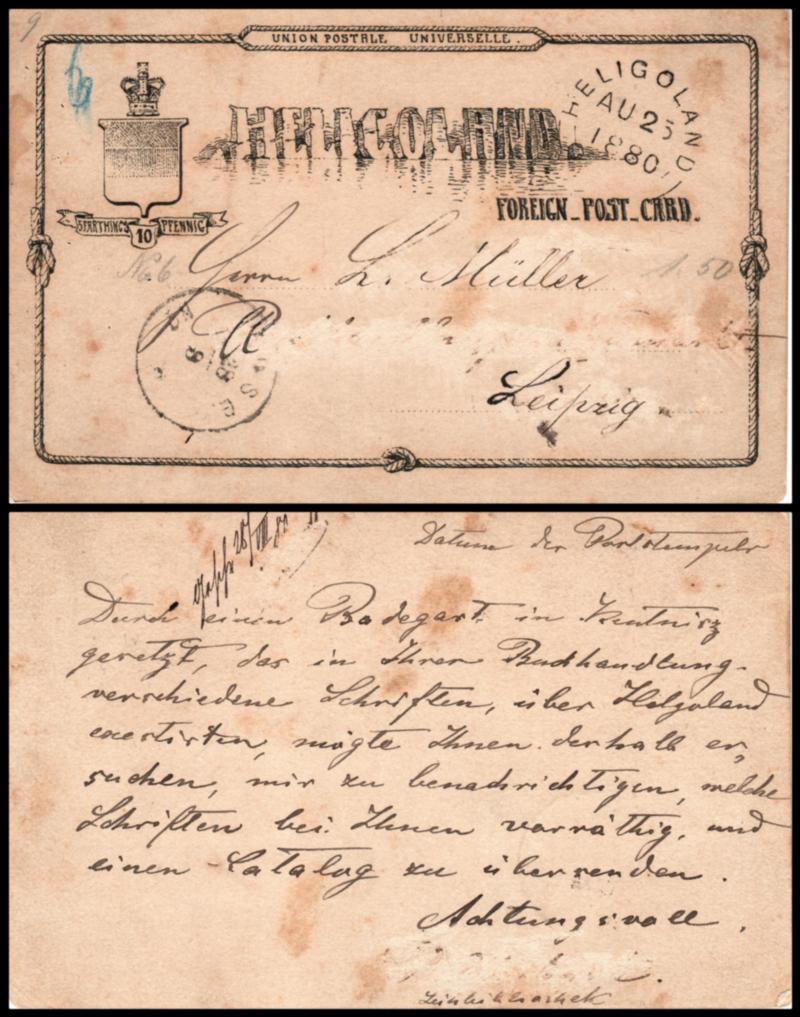 9
UNION POSTALE UNIVERSELLE.
HELIGOLAND
HELIGOLAND
AU 25
1880
5 FARTHINGS 10 PFENNIG
FOREIGN_POST_CARD.
No. 6
1.50
Herrn L. Müller
Leipzig
Datum des Poststempels
Durch einen Badegast in Kentnisz
gesetzt, das in Ihrer Buchhandlung
verschiedene Schriften, über Helgoland
exestirten, mögte Ihnen deshalb er„
suchen, mir zu benachrichtigen, welche
Schriften bei Ihnen vorräthig, und
einen Catalog zu übersenden.
Achtungsvoll.